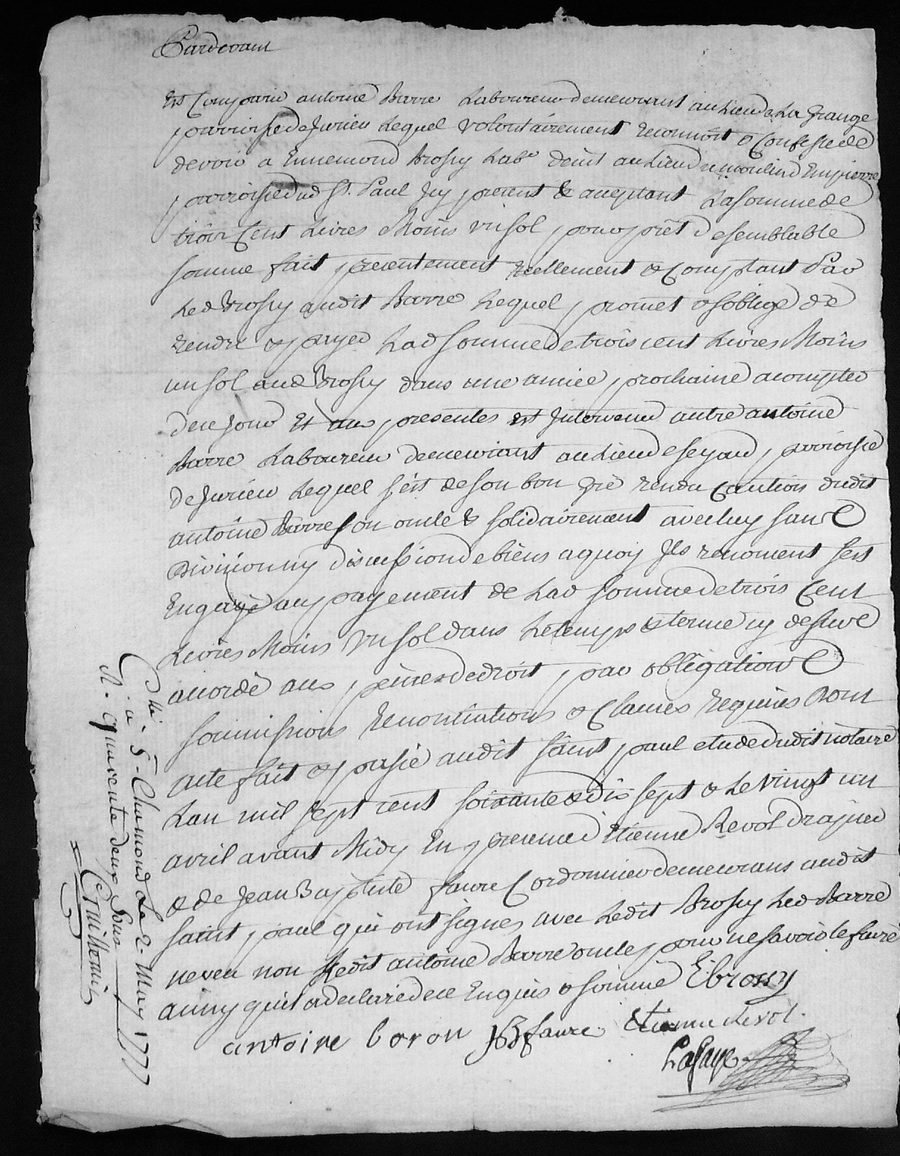 Pardevant
Est Comparu antoine Barre Laboureur demeurant au Lieu de La Grange
parroisse de Jurieu Lequel volontairement reconnoit & Confesse de
devoir a Ennemond Brossy Lab.r deint au Lieu du moulin d'Empierre
parroisse dud St. Paul Icy present & aceptant La somme de
trois Cent Livres Moins un sol pour prêt de semblable
somme fait presentement reellement & Comptant Par
Led Brossy audit Barre Lequel promet & s'oblige de
rendre & payer Lad somme de trois cent Livres Moins
un sol aud Brossy dans une année prochaine a compter
de ce jour Et aux presentes est Intervenu autre antoine
Barre Laboureur demeurant au Lieu de seyard parroisse
de Jurieu Lequel s'est de son bon gré rendu Caution dudit
antoine Barre son oncle & solidairement avec luy sans
Division ny discussion de biens a quoy Ils renoncent s'est
Engagé au payement de Lad somme de trois Cent
Livres Moins un sol dans Le temps & terme cy dessus
accordé aux peines de droit par obligations
soumissions renontiations & Clauses requises Dont
acte fait & passé audit saint paul etude dudit notaire
Lan mil sept cent soixante & dix sept & Le vingt un
avril avant Midy En presence d'Etienne Revol Drapier
& de Jean Baptiste faure Cordonnier demeurans audit
saint paul qui ont signés avec Ledit Brossy Led Barre
neveu non Ledit antoine Barre oncle pour ne savoir le faire
ainsy qu'il a declaré de ce Enquis & sommé EBrossy
antoine baron JB faure Etienne Revol.
Lafaye
C.llé a St. Chamond Le 2 May 1777
R. quarente deux sous